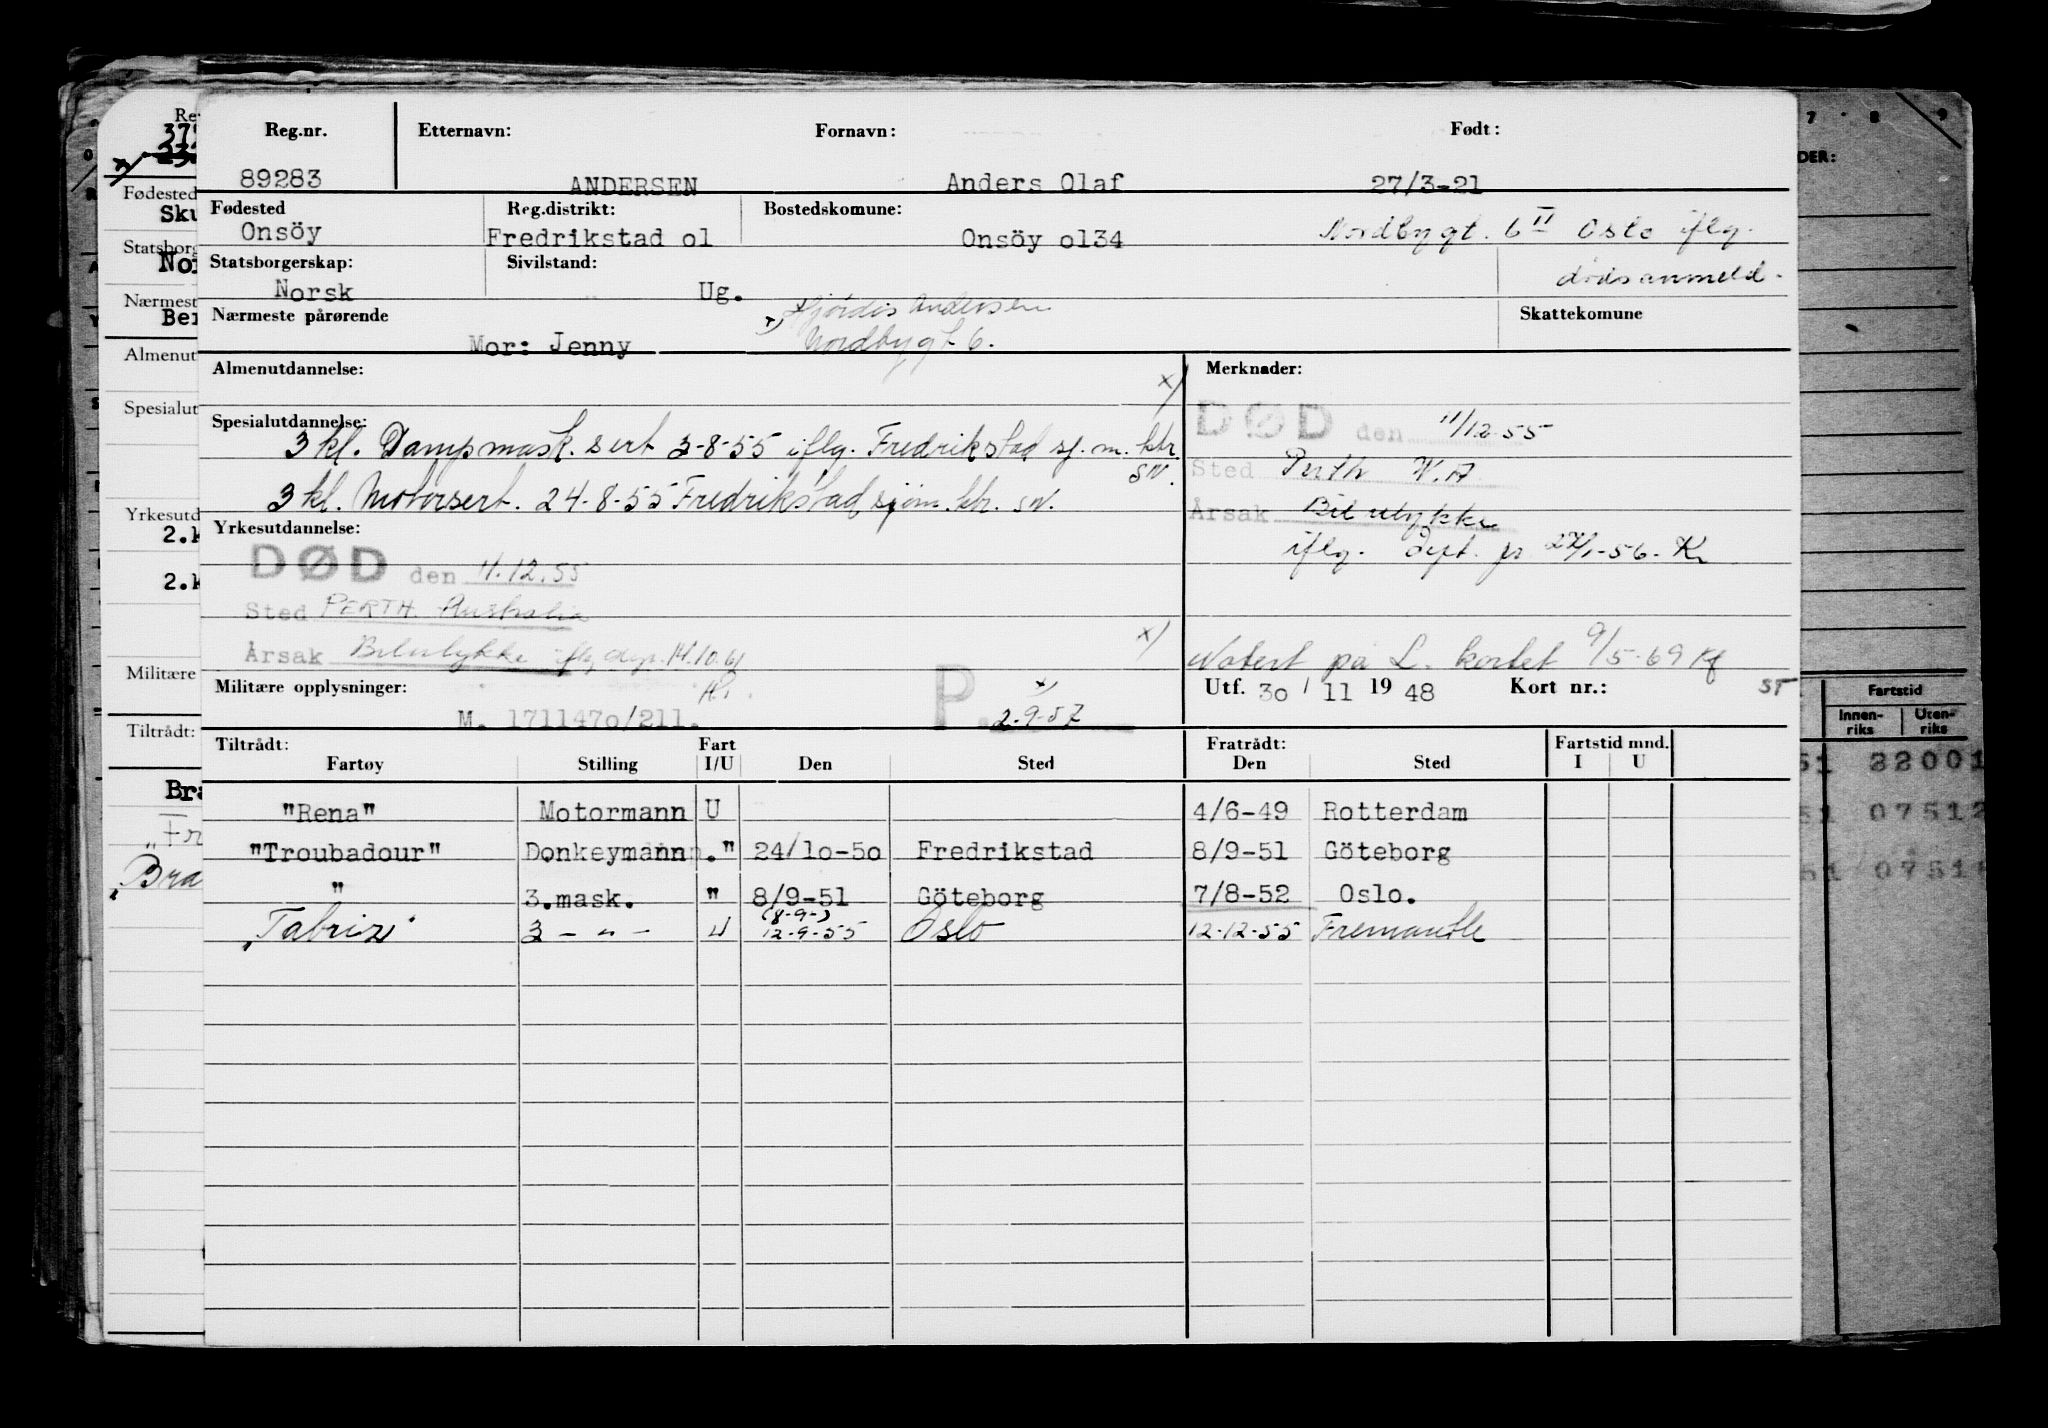 Reg.nr. Etternavn: Fornavn: Født:
89283 ANDERSEN Anders Olaf 27/3-21
Fødested Reg.distrikt: Bostedskomune: Nordbygt. 6 II Oslo iflg.
Onsöy Fredrikstad ol Onsöy ol34
Statsborgerskap: Sivilstand: dødsanmeld.
Norsk Ug.
Nærmeste pårørende x) Hjördis Andersen Skattekomune
Mor: Jenny Nordbygt 6.
Almenutdannelse: x) Merknader:
Spesialutdannelse: DØD den 11/12-55
3 kl. Dampmask. sert 3-8-55 iflg. Fredrikstad sj. m. ktr SN.
Sted Perth W.A
3 kl. Motorsert. 24-8-55 Fredrikstad sjøm. ktr. SN.
Årsak Bilulykke
Yrkesutdannelse: iflg. Dept. pr 27/1-56. K
DØD den 11.12.55
Sted PERTH. Australia
Årsak Bilulykke iflg dep. 14.10.61
x) Notert på L. kortet 9/5-69 Kf
Militære opplysninger: Utf. 30 / 11 19 48 Kort nr.: ST
M. 1711470/211. P. x) 2-9-57
Tiltrådt: Fart Fratrådt: Fartstid mnd.
Fartøy Stilling I/U Den Sted Den Sted I U
"Rena" Motormann U 4/6-49 Rotterdam
"Troubadour" Donkeymann . " 24/lo-5o Fredrikstad 8/9-51 Göteborg
" 3.mask. " 8/9-51 Göteborg 7/8-52 Oslo.
"Tabriz" 3 - " - U (8-9-) 12-9-55 Oslo 12-12-55 Fremantle
Fødested
Sku
Statsborg
Nor
Nærmest
Ber
Almenut
Spesialut
Yrkesutd
2.k
2.k
Militære
Tiltrådt:
Bra
"Fr
"Bra
7 8 9
DER:
Fartstid
Innen-riks Uten-riks
51 22001
51 07512
51 0751